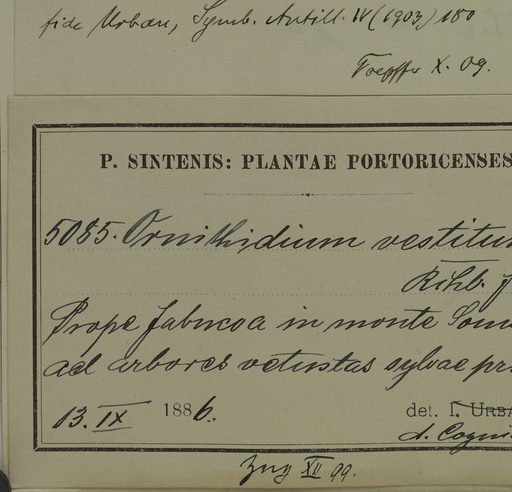 fide Urban, Symb. Antill. IV (1903) 180
Toepffer X. 09.
P. SINTENIS: PLANTAE PORTORICENSES
5085. Ornithidium vestitum
Rchb. f
Prope Yabucoa in monte
ad arbores vetustas sylvae pr
13. IX 1886.
det. I. URBA
A. Cogni
XII 99.